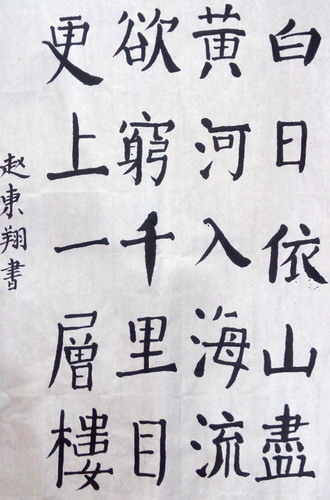 白日依山盡
黃河入海流
欲窮千里目
更上一層樓
赵東翔書